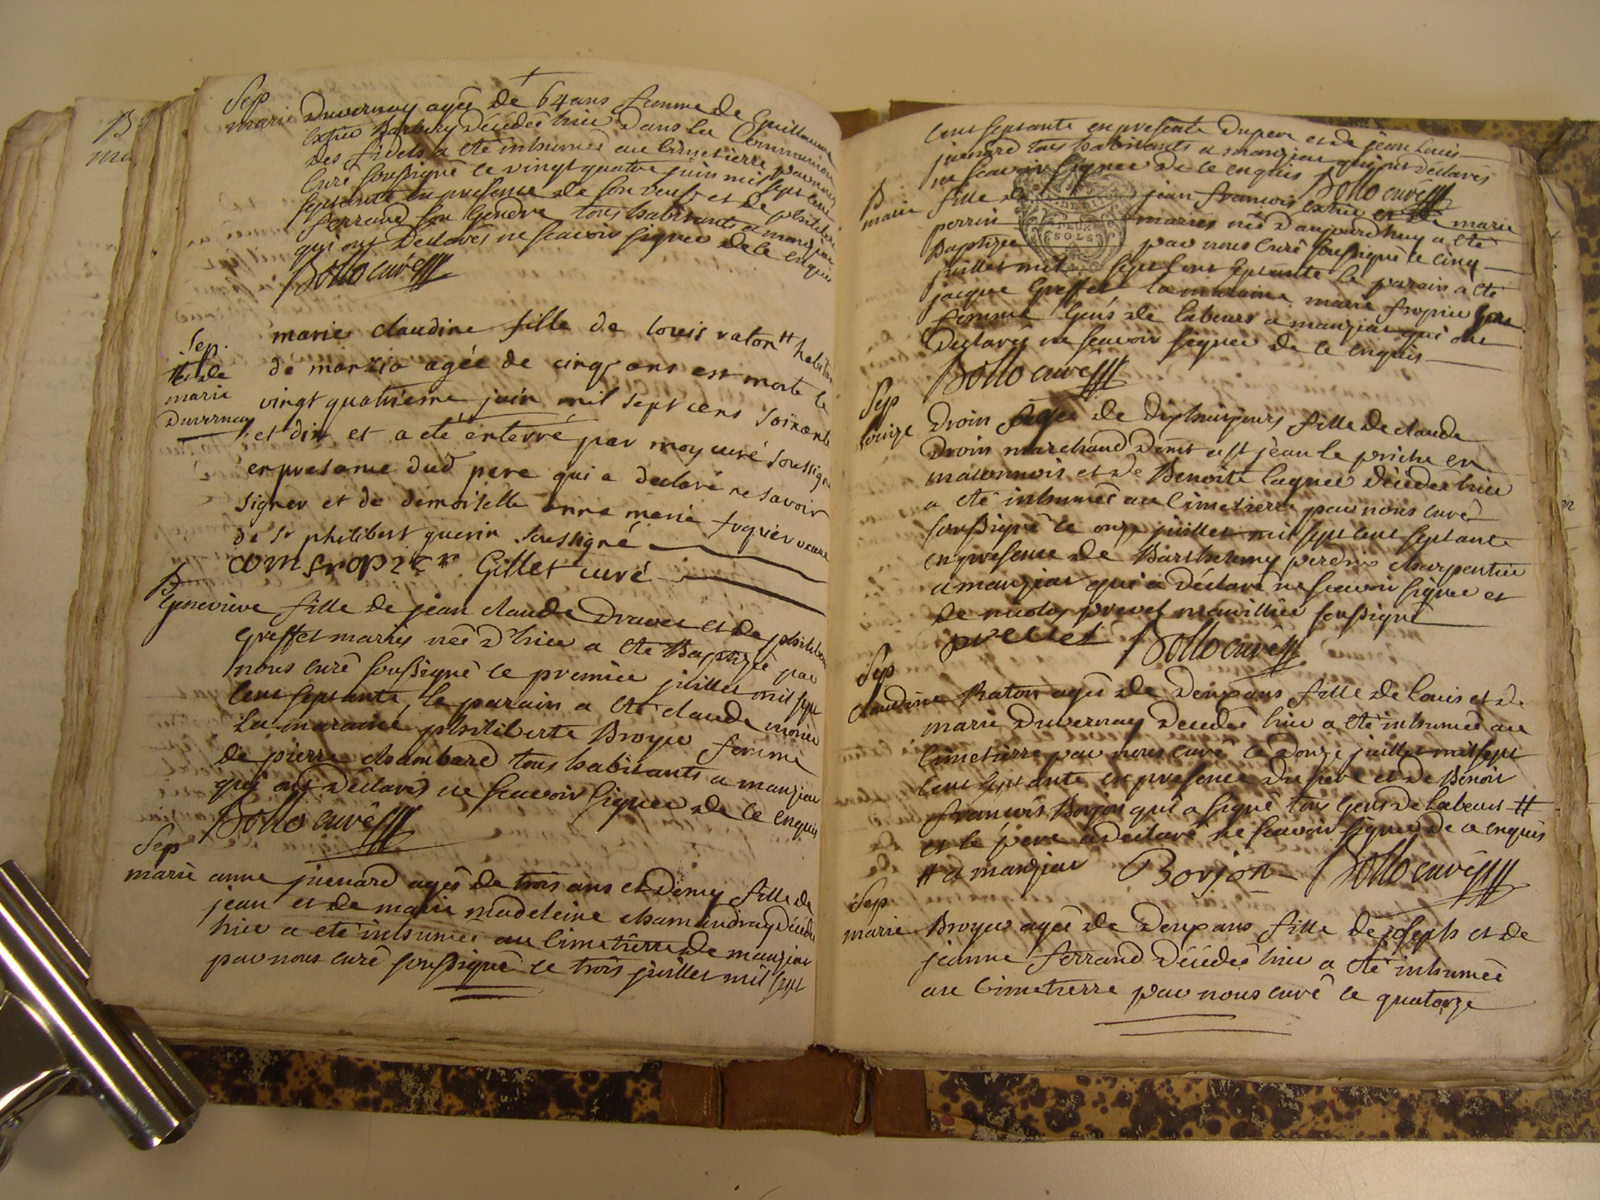 Sep
marie Duvernay agée de 64 ans femme de Guillaume
Barbery Décédée hier Dans la Communion
des fidels a eté inhumée au Cimetierre par nous
Curé soussigné le vingt quatre juin mil sept cent
septante en presence de son veuf et de philibert
ferrand son Gendre tous habitants a manziat
qui ont Déclarés ne scavoir signer de ce enquis
Bollo curé
Sep.
marie claudine fille de louis raton # habitan
de manzia agée de cinq ans est morte le
vingt quatrieme juin mil sept cens soixante
et dix et a eté enterré par moy curé soussigné
en presance dud pere qui a declaré ne savoir
signer et de demoiselle anne marie fropier veuve
de Sr philibert guerin soussigné
# & de
marie
Duvernay
Gillet curé
B
Genevieve fille de jean claude Druvet et de philiberte
Greffet mariés née d'hier a eté Baptizée par
nous curé soussigné le premier juillet mil sept
cent septante, le parain a eté claude
La maraine philiberte Broyer femme
de pierre chambard tous habitants a manziat
qui ont Déclarés ne scavoir signer de ce enquis
Bollo curé
Sep
marie anne juenard agée de trois ans et Demy fille de
jean et de marie madeleine chamandray Décédée
hier a eté inhumée au Cimetierre de manziat
par nous curé soussigné le trois juillet mil sept
cent septante en presence du pere et de jean louis
juenard tous habitants a manziat qui ont déclarés
ne scavoir signer de ce enquis Bollo curé
B
marie fille de jean francois et de marie
perrine mariés née d'aujourdhuy a eté
Baptizée par nous curé soussigné le cinq
juillet mil sept cent septante le parain a eté
jacque Greffet la maraine marie fropier
femme Gens de labeurs a manziat qui ont
Déclarés ne scavoir signer de ce enquis
Bollo curé
Sep
louize Droin agée de Dixhuit jours fille de claude
Droin marchand Demt a St jean le priche en
maconnois et de Benoite lagnier Décédée hier
a eté inhumée au Cimetierre par nous curé
soussigné le onze juillet mil sept cent septante
en presence de Barthelemy perdrix charpentier
a manziat qui a Déclaré ne scavoir signer et
de nicolas prevel marillier soussigné
prevel Bollo curé
Sep
claudine Raton agée de Deux ans fille de louis et de
marie Duvernay Décédée hier a eté inhumée au
Cimetierre par nous curé le Douze juillet mil sept
cent septante en presence du pere et de Benoit
francois Borjon qui a signé tous Gens de labeurs #
et le pere a Déclaré ne scavoir signer de ce enquis
# a manziat Borjon Bollo curé
Sep
marie Broyer agée de Deux ans fille de joseph et de
jeanne ferrand Décédée hier a eté inhumée
au Cimetierre par nous curé le quatorze